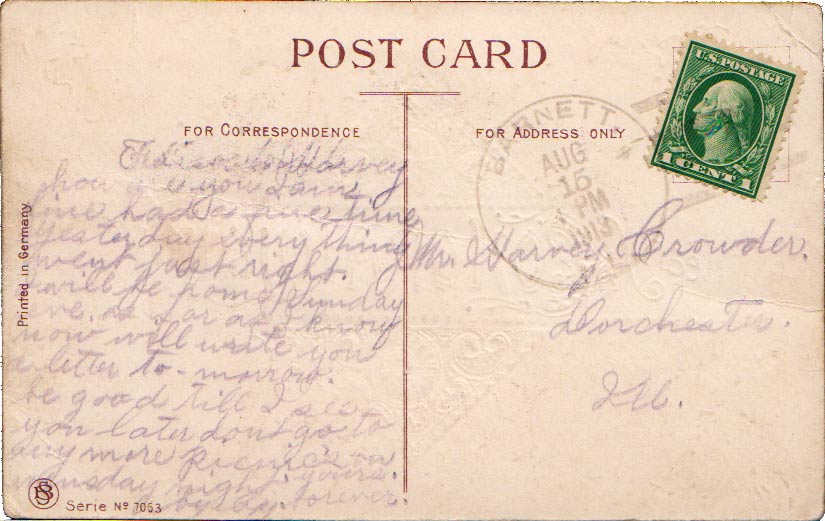 POST CARD
FOR CORRESPONDENCE
FOR ADDRESS ONLY
U.S. POSTAGE
1 CENT 1
BARNETT
AUG
15
PM
1913
Printed in Germany
Harvey
how are you I am
fine had a fine time
yesterday every thing
went just right.
I will be home Sunday
eve. as far as I know
now will write you
a letter to-morrow.
be good till I see
you later dont go to
any more picnic's on
wensday night. yours.
forever.
Mr. Harvey Crowder.
Dorchester.
Ill.
Serie Nº 7053